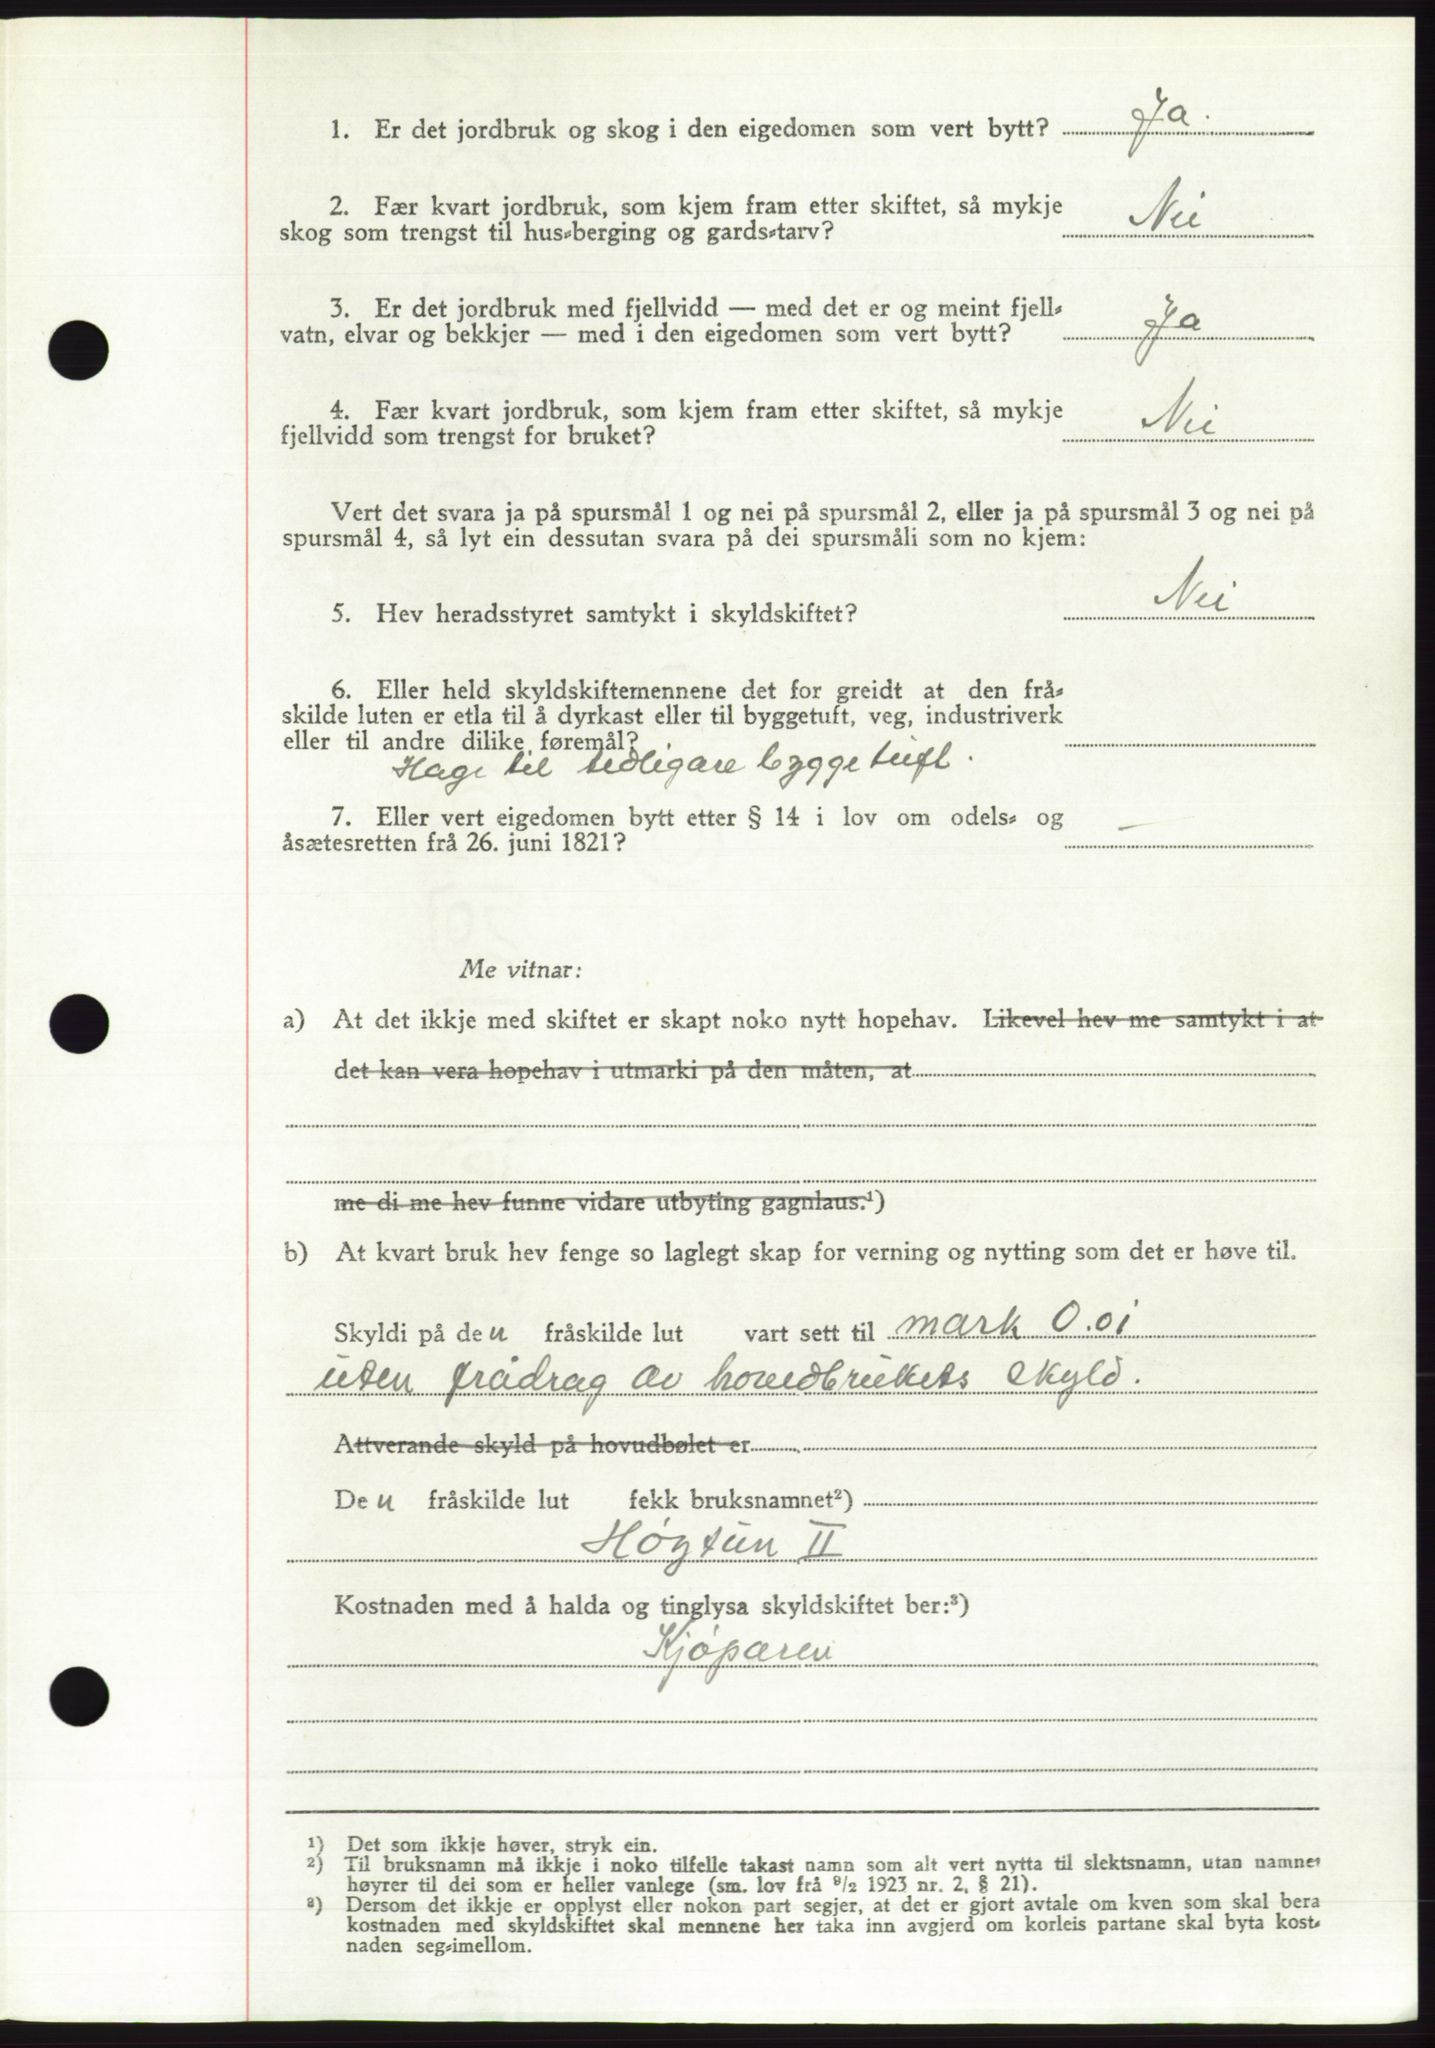 1. Er det jordbruk og skog i den eigedomen som vert bytt? Ja.
2. Fær kvart jordbruk, som kjem fram etter skiftet, så mykje
skog som trengst til hus-berging og gards-tarv? Nei
3. Er det jordbruk med fjellvidd — med det er og meint fjell-
vatn, elvar og bekkjer — med i den eigedomen som vert bytt? Ja
4. Fær kvart jordbruk, som kjem fram etter skiftet, så mykje
fjellvidd som trengst for bruket? Nei
Vert det svara ja på spursmål 1 og nei på spursmål 2, eller ja på spursmål 3 og nei på
spursmål 4, så lyt ein dessutan svara på dei spursmåli som no kjem:
5. Hev heradsstyret samtykt i skyldskiftet? Nei
6. Eller held skyldskiftemennene det for greidt at den frå-
skilde luten er etla til å dyrkast eller til byggetuft, veg, industriverk
eller til andre dilike føremål?
Hage til tidligare byggetuft.
7. Eller vert eigedomen bytt etter § 14 i lov om odels- og
åsætesretten frå 26. juni 1821? —
Me vitnar:
a) At det ikkje med skiftet er skapt noko nytt hopehav. Likevel hev me samtykt i at
det kan vera hopehav i utmarki på den måten, at
me di me hev funne vidare utbyting gagnlaus.¹)
b) At kvart bruk hev fenge so laglegt skap for verning og nytting som det er høve til.
Skyldi på den fråskilde lut vart sett til mark 0.01
uten frådrag av hovedbrukets skyld.
Attverande skyld på hovudbølet er
Den fråskilde lut fekk bruksnamnet²)
Høgtun II
Kostnaden med å halda og tinglysa skyldskiftet ber:³)
Kjøparen
¹) Det som ikkje høver, stryk ein.
²) Til bruksnamn må ikkje i noko tilfelle takast namn som alt vert nytta til slektsnamn, utan namnet
høyrer til dei som er heller vanlege (sm. lov frå ⁹/₂ 1923 nr. 2, § 21).
³) Dersom det ikkje er opplyst eller nokon part segjer, at det er gjort avtale om kven som skal bera
kostnaden med skyldskiftet skal mennene her taka inn avgjerd om korleis partane skal byta kost-
naden seg-imellom.